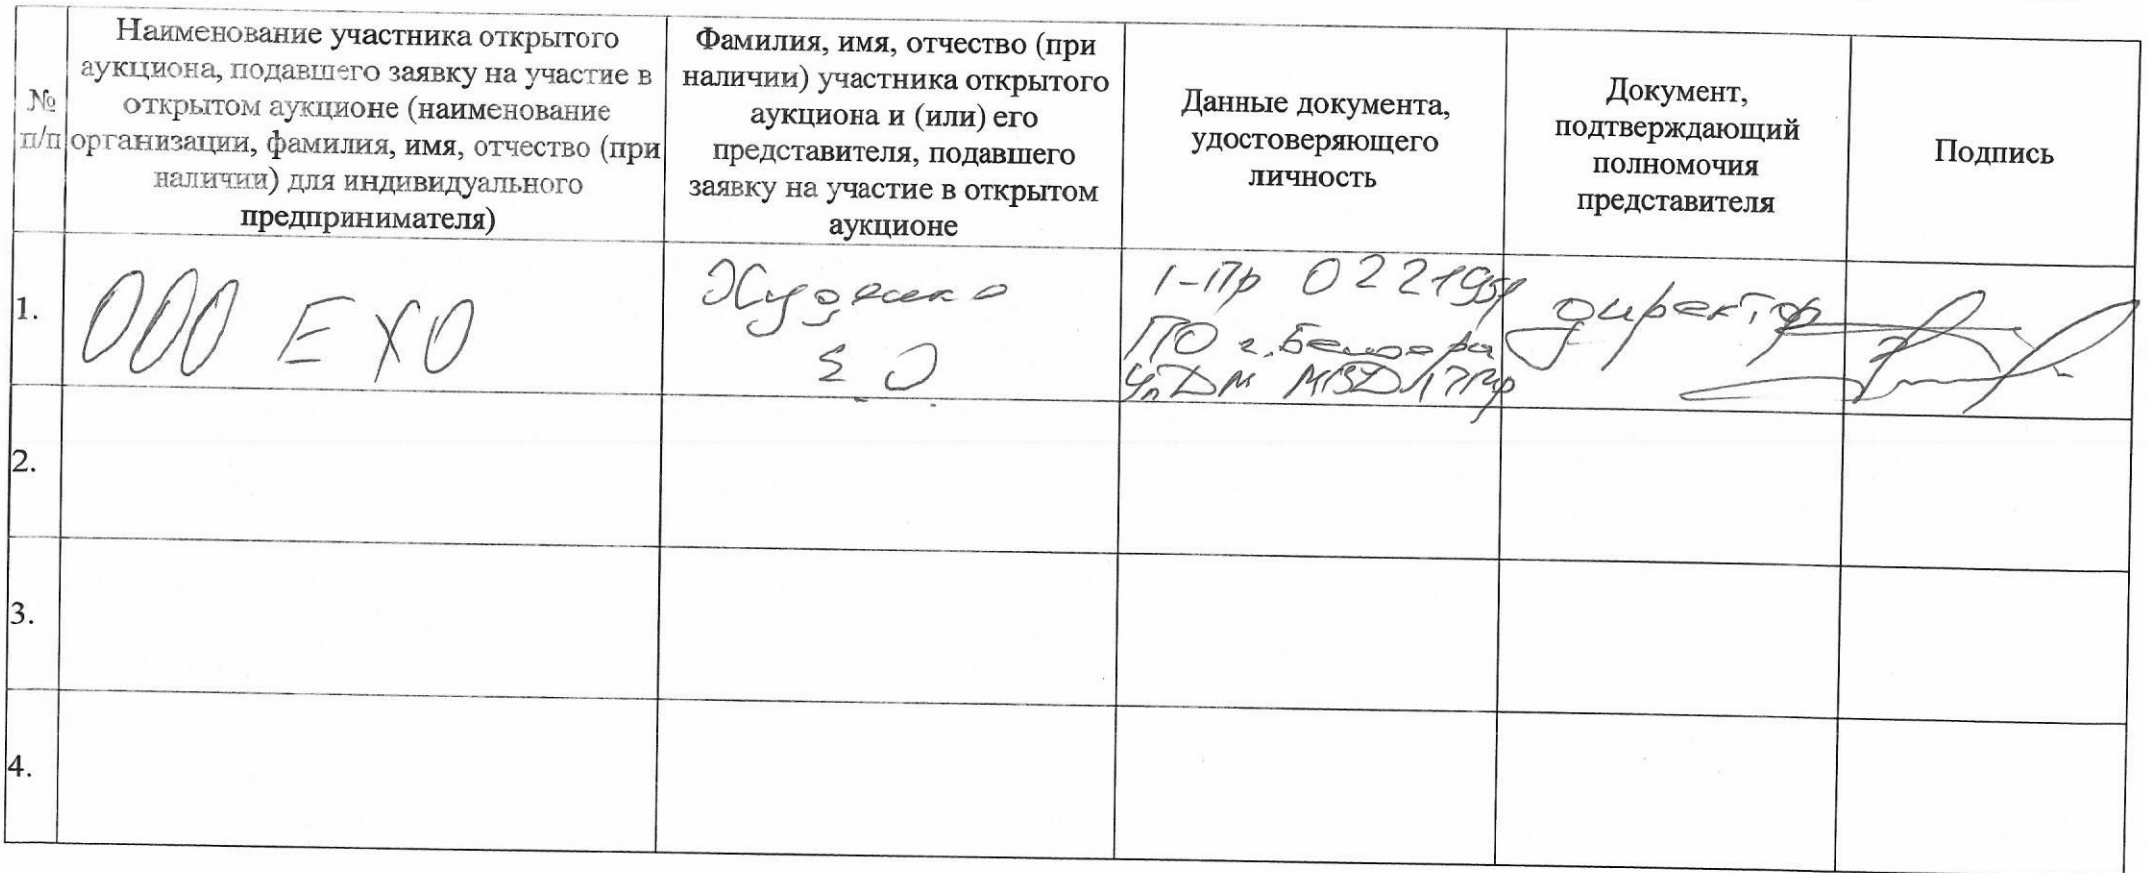 №
п/п
Наименование участника открытого
аукциона, подавшего заявку на участие в
открытом аукционе (наименование
организации, фамилия, имя, отчество (при
наличии) для индивидуального
предпринимателя)
Фамилия, имя, отчество (при
наличии) участника открытого
аукциона и (или) его
представителя, подавшего
заявку на участие в открытом
аукционе
Данные документа,
удостоверяющего
личность
Документ,
подтверждающий
полномочия
представителя
Подпись
1.
ООО ЕХО
Е О
I-Пр
ПО г.
МВД ПМР
директор
2.
3.
4.